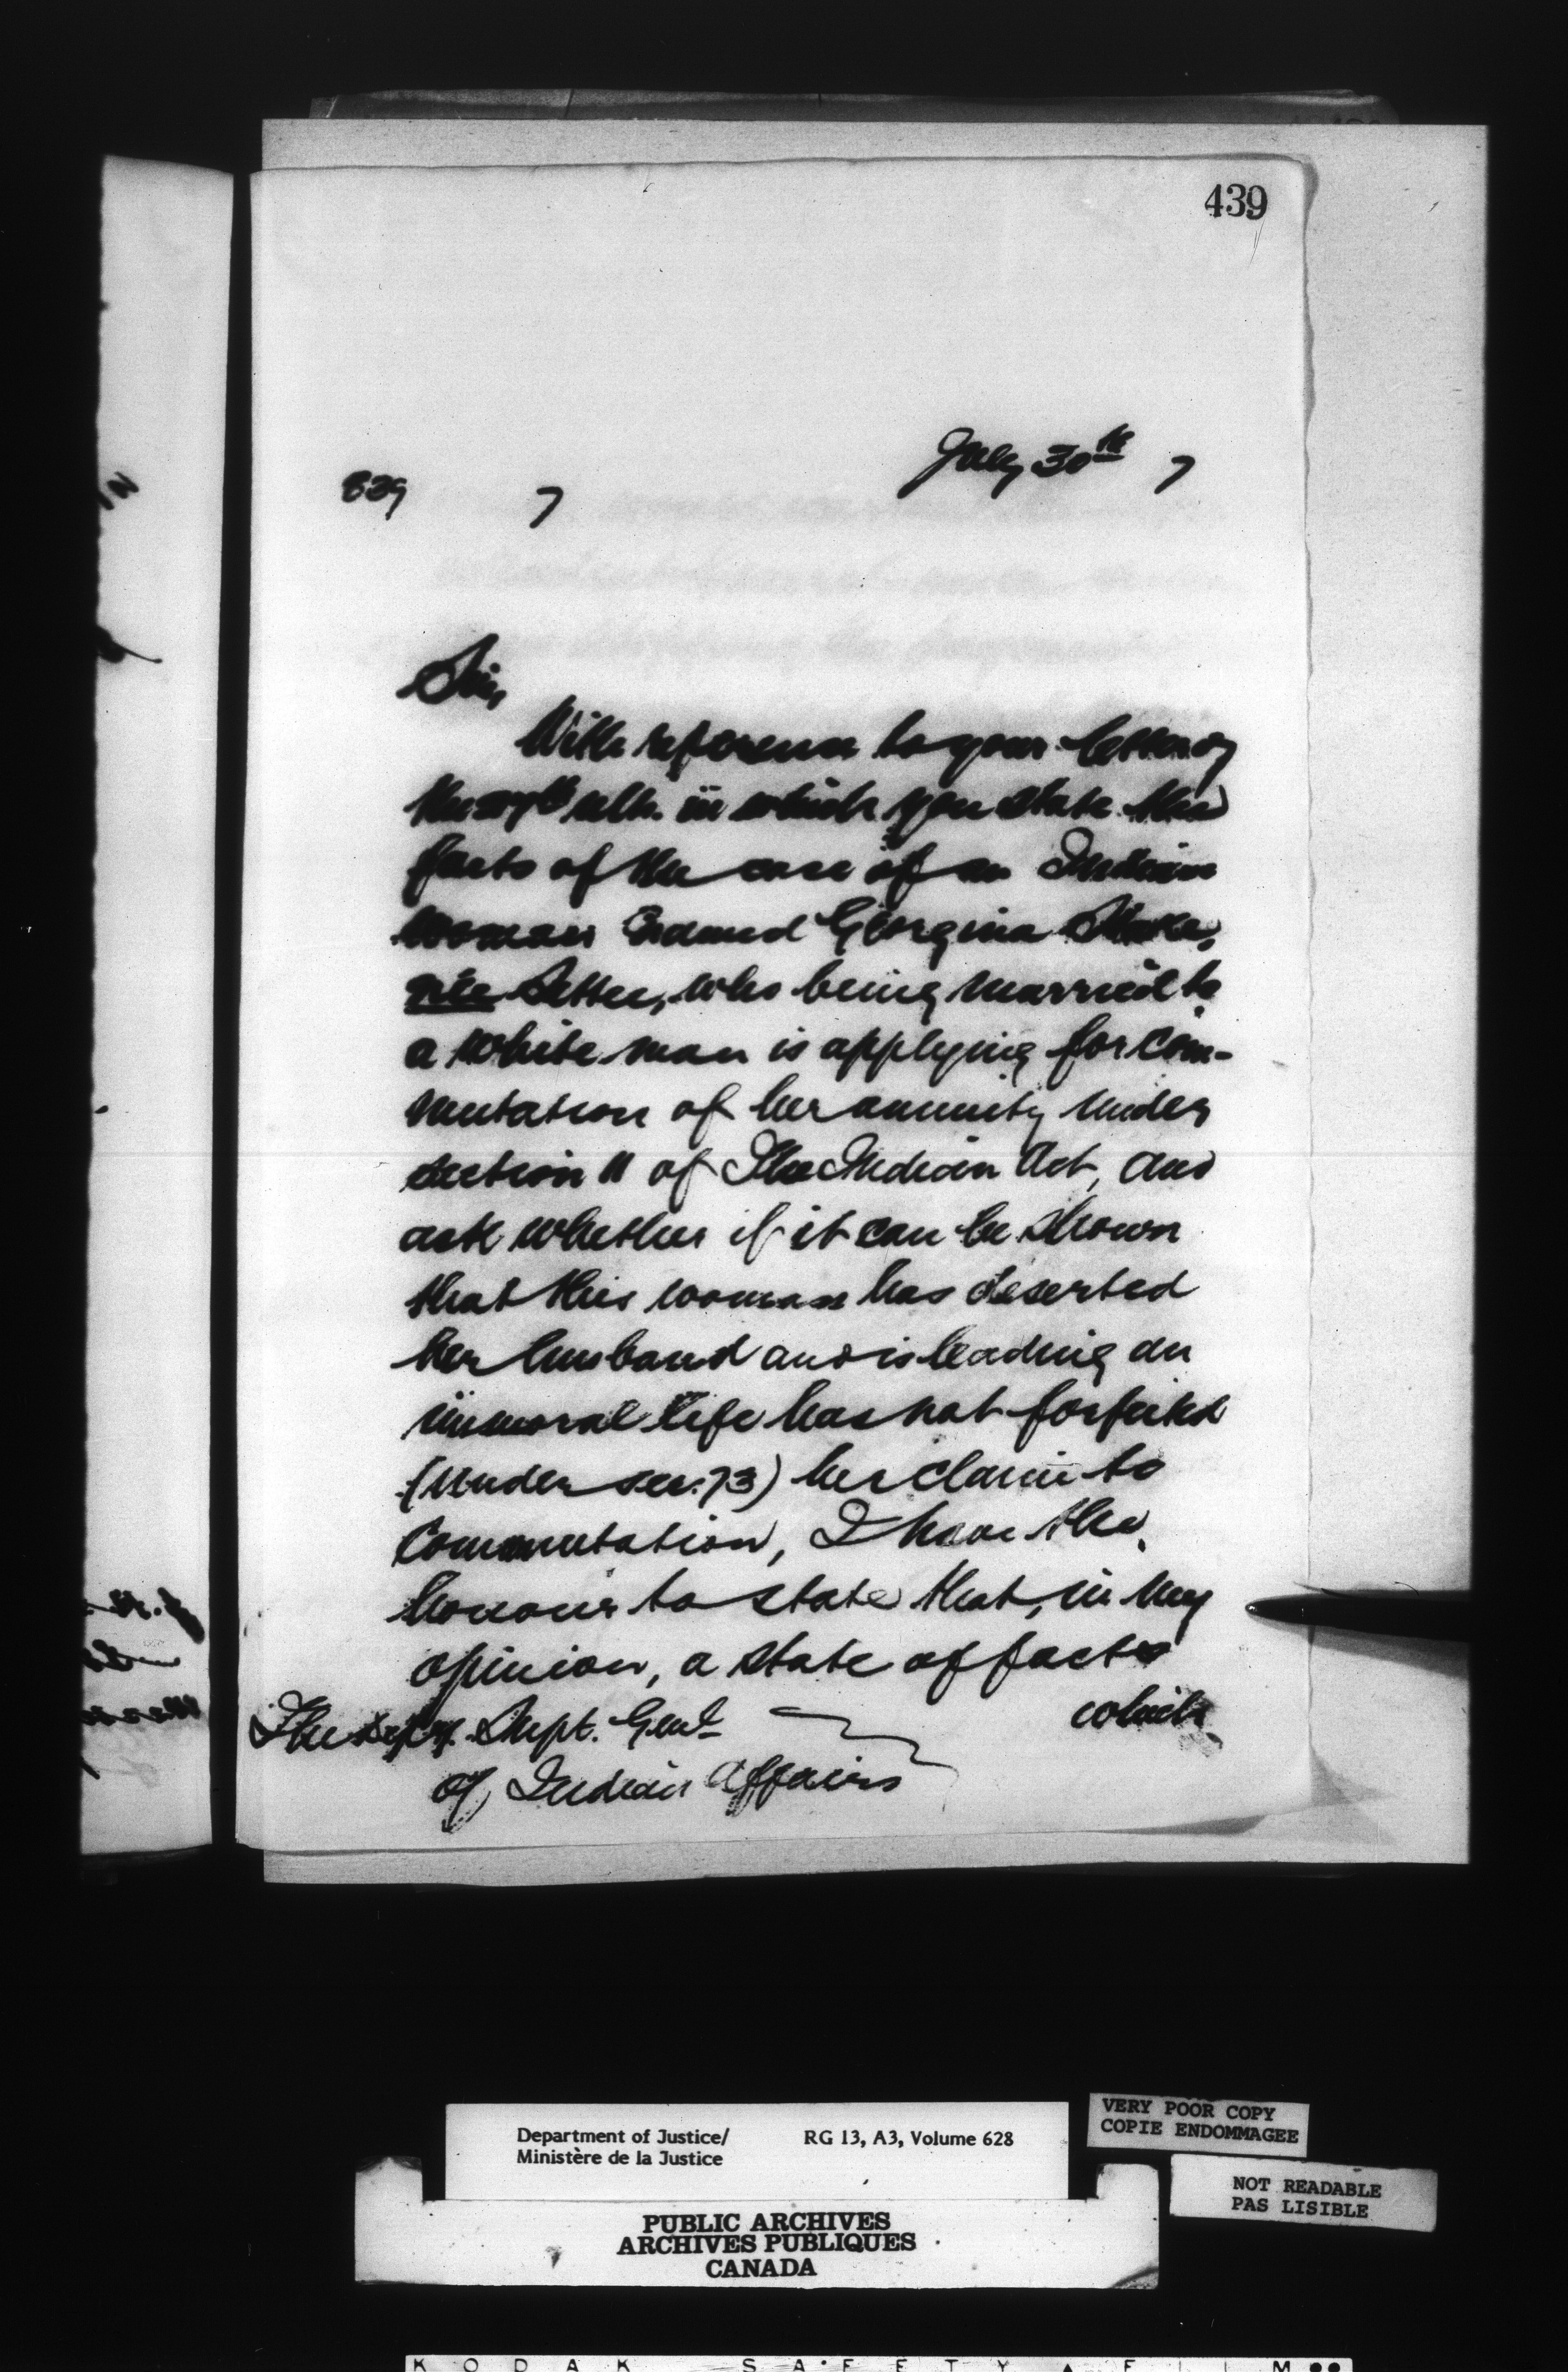 439
July 30th 7
839 7
Sir,
With reference to your letter of
the 27th ult. in which you state the
facts of the case of an Indian
woman named Georgina
née Settee, who being married to
a white man is applying for com-
mutation of her annuity under
section 11 of The Indian Act, and
ask whether if it can be shown
that this woman has deserted
her husband and is leading an
immoral life has not forfeited
(under sec. 73) her claim to
Commutation, I have the
honour to state that, in my
opinion, a state of facts
which
The Depy. Supt. Genl.
of Indian Affairs
Department of Justice/ RG 13, A3, Volume 628
Ministère de la Justice
VERY POOR COPY
COPIE ENDOMMAGEE
NOT READABLE
PAS LISIBLE
PUBLIC ARCHIVES
ARCHIVES PUBLIQUES
CANADA
KODAK SAFETY FILM